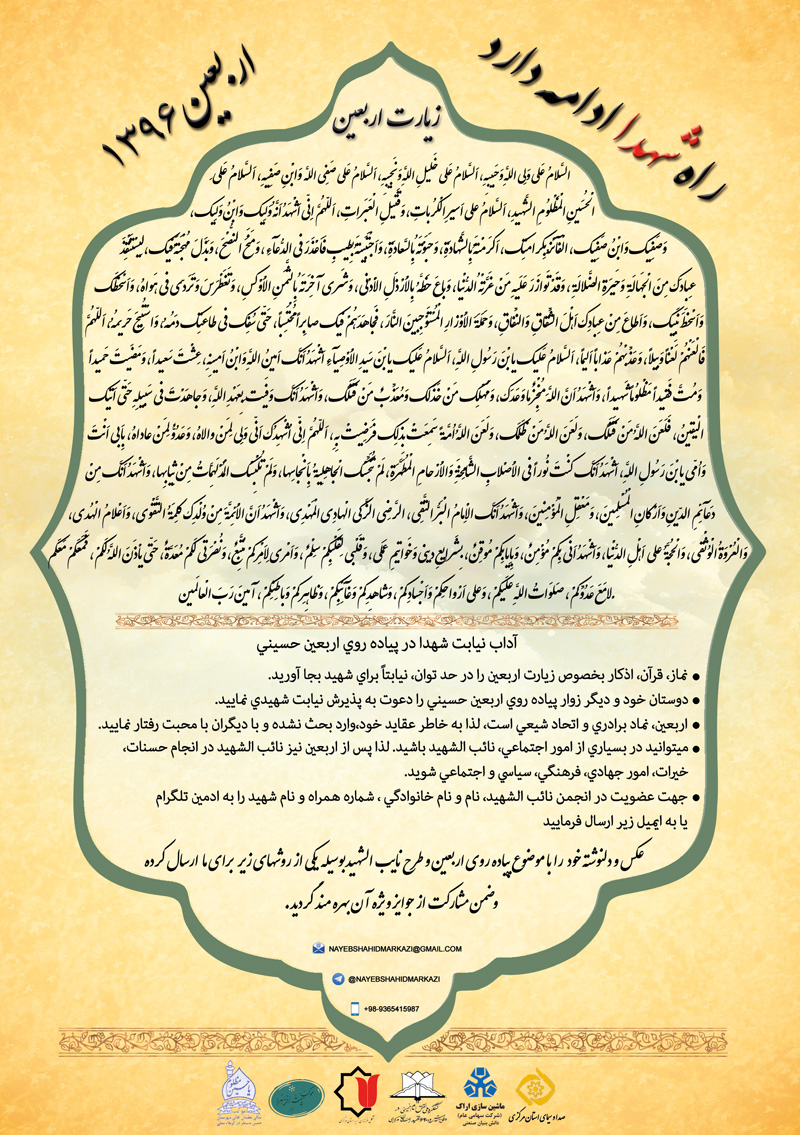 راه شهدا ادامه دارد
اربعین ۱۳۹۶
زیارت اربعین
اَلسَّلامُ عَلى وَلِیِّ اللهِ وَحَبیبِهِ، اَلسَّلامُ عَلى خَلیلِ اللهِ وَنَجیبِهِ، اَلسَّلامُ عَلى صَفِیِّ اللهِ وَابْنِ صَفِیِّهِ، اَلسَّلامُ عَلى
الْحُسَیْنِ الْمَظْلُومِ الشَّهیدِ، اَلسَّلامُ عَلى اَسیرِ الْکُرُباتِ، وَقَتیلِ الْعَبَراتِ، اَللّهُمَّ اِنّی اَشْهَدُ اَنَّهُ وَلِیُّکَ وَابْنُ وَلِیِّکَ،
وَصَفِیُّکَ وَابْنُ صَفِیِّکَ، الْفآئِزُ بِکَرامَتِکَ، اَکْرَمْتَهُ بِالشَّهادَةِ، وَحَبَوْتَهُ بِالسَّعادَةِ، وَاجْتَبَیْتَهُ بِطیبِ فَاَعْذَرَ فىِ الدُّعآءِ، وَمَنَحَ النُّصْحَ، وَبَذَلَ مُهْجَتَهُ فیکَ، لِیَسْتَنْقِذَ
عِبادَکَ مِنَ الْجَهالَةِ وَحَیْرَةِ الضَّلالَةِ، وَقَدْ تَوازَرَ عَلَیْهِ مَنْ غَرَّتْهُ الدُّنْیا، وَباعَ حَظَّهُ بِالْاَرْذَلِ الْاَدْنى، وَشَرى آخِرَتَهُ بِالثَّمَنِ الْاَوْکَسِ، وَتَغَطْرَسَ وَتَرَدّى فی هَواهُ، وَاَسْخَطَکَ
وَاَسْخَطَ نَبِیَّکَ، وَاَطاعَ مِنْ عِبادِکَ اَهْلَ الشِّقاقِ وَالنِّفاقِ، وَحَمَلَةَ الْاَوْزارِ الْمُسْتَوْجِبینَ النّارَ، فَجاهَدَهُمْ فیکَ صابِراً مُحْتَسِباً، حَتّى سُفِکَ فی طاعَتِکَ دَمُهُ، وَاسْتُبیحَ حَریمُهُ، اَللّهُمَّ
فَالْعَنْهُمْ لَعْناً وَبیلاً، وَعَذِّبْهُمْ عَذاباً اَلیماً، اَلسَّلامُ عَلَیْکَ یَابْنَ رَسُولِ اللهِ، اَلسَّلامُ عَلَیْکَ یَابْنَ سَیِّدِ الْاَوْصِیآءِ اَشْهَدُ اَنَّکَ اَمینُ اللهِ وَابْنُ اَمینِهِ، عِشْتَ سَعیداً، وَمَضَیْتَ حَمیداً
وَمُتَّ فَقیداً مَظْلُوماً شَهیداً، وَاَشْهَدُ اَنَّ اللهَ مُنْجِزٌ ما وَعَدَکَ، وَمُهْلِکٌ مَنْ خَذَلَکَ وَمُعَذِّبٌ مَنْ قَتَلَکَ، وَاَشْهَدُ اَنَّکَ وَفَیْتَ بِعَهْدِ اللهِ، وَجاهَدْتَ فی سَبیلِهِ حَتّى اَتیکَ
الْیَقینُ، فَلَعَنَ اللهُ مَنْ قَتَلَکَ، وَلَعَنَ اللهُ مَنْ ظَلَمَکَ، وَلَعَنَ اللهُ اُمَّةً سَمِعَتْ بِذلِکَ فَرَضِیَتْ بِهِ، اَللّهُمَّ اِنّی اُشْهِدُکَ اَنّی وَلِیٌّ لِمَنْ والاهُ، وَعَدُوٌّ لِمَنْ عاداهُ، بِاَبی اَنْتَ
وَاُمّی یَابْنَ رَسُولِ اللهِ، اَشْهَدُ اَنَّکَ کُنْتَ نُوراً فىِ الْاَصْلابِ الشّامِخَةِ وَالْاَرْحامِ الْمُطَهَّرَةِ، لَمْ تُنَجِّسْکَ الْجاهِلِیَّةُ بِاَنْجاسِها، وَلَمْ تُلْبِسْکَ الْمُدْلَهِمّاتُ مِنْ ثِیابِها، وَاَشْهَدُ اَنَّکَ مِنْ
دَعآئِمِ الدّینِ وَاَرْکانِ الْمُسْلِمینَ، وَمَعْقِلِ الْمُؤْمِنینَ، وَاَشْهَدُ اَنَّکَ الْاِمامُ الْبَرُّ التَّقِیُّ، الرَّضِیُّ الزَّکِیُّ الْهادِى الْمَهْدِیُّ، وَاَشْهَدُ اَنَّ الْاَئِمَّةَ مِنْ وُلْدِکَ کَلِمَةُ التَّقْوى، وَاَعْلامُ الْهُدى،
وَالْعُرْوَةُ الْوُثْقى، وَالْحُجَّةُ على اَهْلِ الدُّنْیا، وَاَشْهَدُ اَنّی بِکُمْ مُؤْمِنٌ، وَبِاِیابِکُمْ مُوقِنٌ، بِشَرایِعِ دینی وَخَواتیمِ عَمَلی، وَقَلْبی لِقَلْبِکُمْ سِلْمٌ، وَاَمْرى لِاَمْرِکُمْ مُتَّبِعٌ، وَنُصْرَتی لَکُمْ مُعَدَّةٌ، حَتّى یَاْذَنَ اللهُ لَکُمْ، فَمَعَکُمْ مَعَکُمْ
لامَعَ عَدُوِّکُمْ، صَلَواتُ اللهِ عَلَیْکُمْ، وَعلى اَرْواحِکُمْ وَاَجْسادِکُمْ، وَشاهِدِکُمْ وَغآئِبِکُمْ، وَظاهِرِکُمْ وَباطِنِکُمْ، آمینَ رَبَّ الْعالَمینَ.
آداب نیابت شهدا در پیاده روي اربعین حسیني
● نماز، قرآن، اذکار بخصوص زیارت اربعین را در حد توان، نیابتاً براي شهید بجا آورید.
● دوستان خود و دیگر زوار پیاده روي اربعین حسیني را دعوت به پذیرش نیابت شهیدي نمایید.
● اربعین، نماد برادري و اتحاد شیعي است، لذا به خاطر عقاید خود،وارد بحث نشده و با دیگران با محبت رفتار نمایید.
● میتوانید در بسیاري از امور اجتماعي، نائب الشهید باشید. لذا پس از اربعین نیز نائب الشهید در انجام حسنات،
خیرات، امور جهادي، فرهنگي، سیاسي و اجتماعي شوید.
● جهت عضویت در انجمن نائب الشهید، نام و نام خانوادگي ، شماره همراه و نام شهید را به ادمین تلگرام
یا به ایمیل زیر ارسال فرمایید
عکس و دلنوشته خود را با موضوع پیاده روی اربعین و طرح نایب الشهید بوسیله یکی از روشهای زیر برای ما ارسال کرده
و ضمن مشارکت از جوایز ویژه آن بهره مند گردید.
NAYEBSHAHIDMARKAZI@GMAIL.COM
@NAYEBSHAHIDMARKAZI
+98-9365415987
صدا و سیمای استان مرکزی
ماشین سازی اراک
(شرکت سهامی عام)
دانش بنیان صنعتی